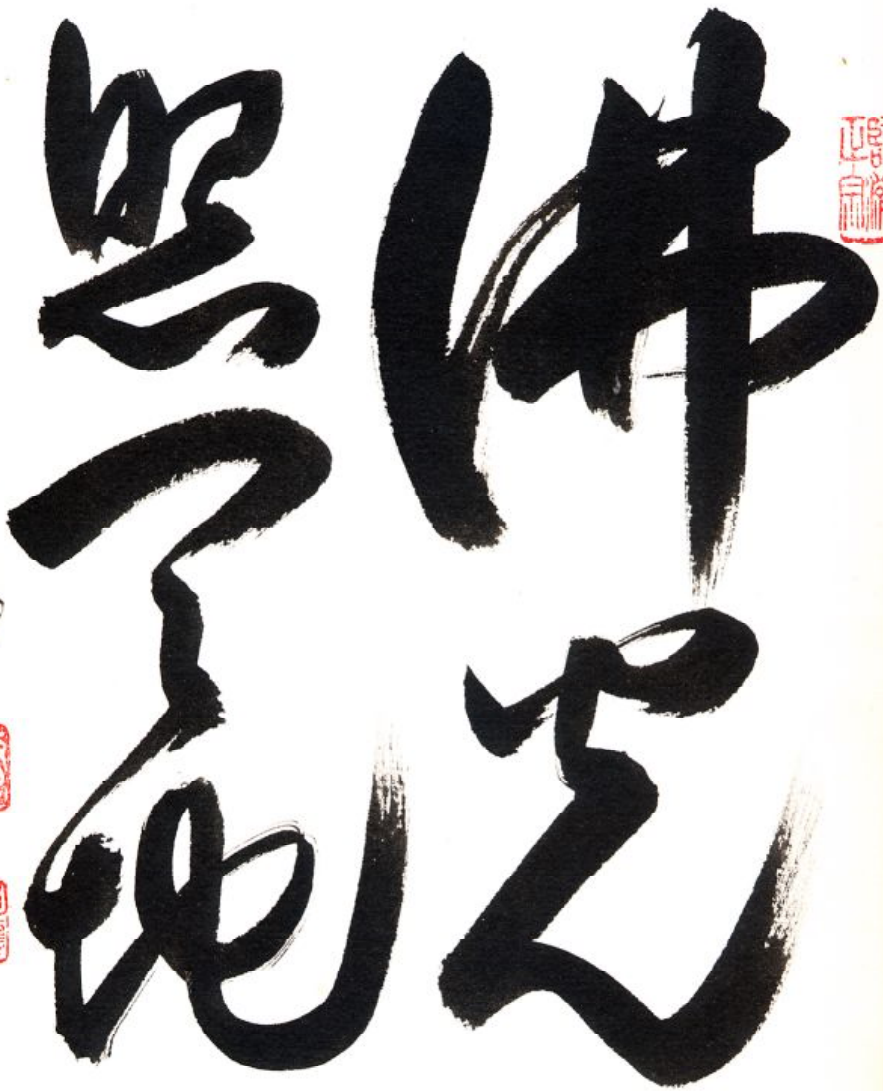 佛光
照天地